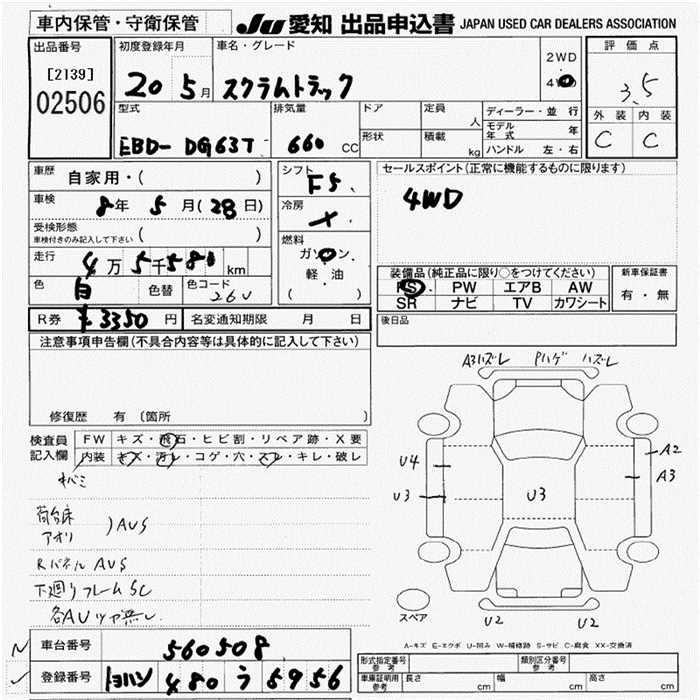 車内保管・守衛保管
JU 愛知 出品申込書 JAPAN USED CAR DEALERS ASSOCIATION
出品番号
[2139]
02506
初度登録年月
20 5月
車名・グレード
スクラムトラック
2WD
4WD
評価点
3.5
外装 内装
C C
型式
EBD-DG63T
排気量
660 CC
ドア
形状
定員
人
積載
kg
ディーラー・並行
モデル年式 年
ハンドル 左・右
車歴
自家用・( )
車検
8年 5月(28日)
受検形態
車検付きのみ記入して下さい ( )
走行
4万 5千580 km
色
白 色替
色コード
26U
シフト
F5
冷房
燃料
ガソリン・
軽・油
( )
セールスポイント(正常に機能するものに限ります)
4WD
装備品(純正品に限り○をつけてください)
PS PW エアB AW
SR ナビ TV カワシート
新車保証書
有・無
R券 ¥3350円
名変通知期限 月 日
後日品
注意事項申告欄(不具合内容等は具体的に記入して下さい)
修復歴 有 (箇所
検査員記入欄
FW キズ・飛石・ヒビ割・リペア跡・X要
内装 キズ・汚レ・コゲ・穴・スレ・キレ・破レ
荷台床
アオリ )AUS
Rパネル AUS
下廻りフレームSC
各AUツヤ無し
A3ハズレ Pハゲ ハズレ
U4
U3
U3
A2
A3
U2 U2
スペア
A-キズ E-エクボ U-凹み W-補修跡 S-サビ C-腐食 XX-交換済
車台番号 560508
登録番号 トヨハシ 480 う 5956
形式指定番号 参考
類別区分番号 参考
車庫証明用 参考
長さ cm
幅 cm
高さ cm